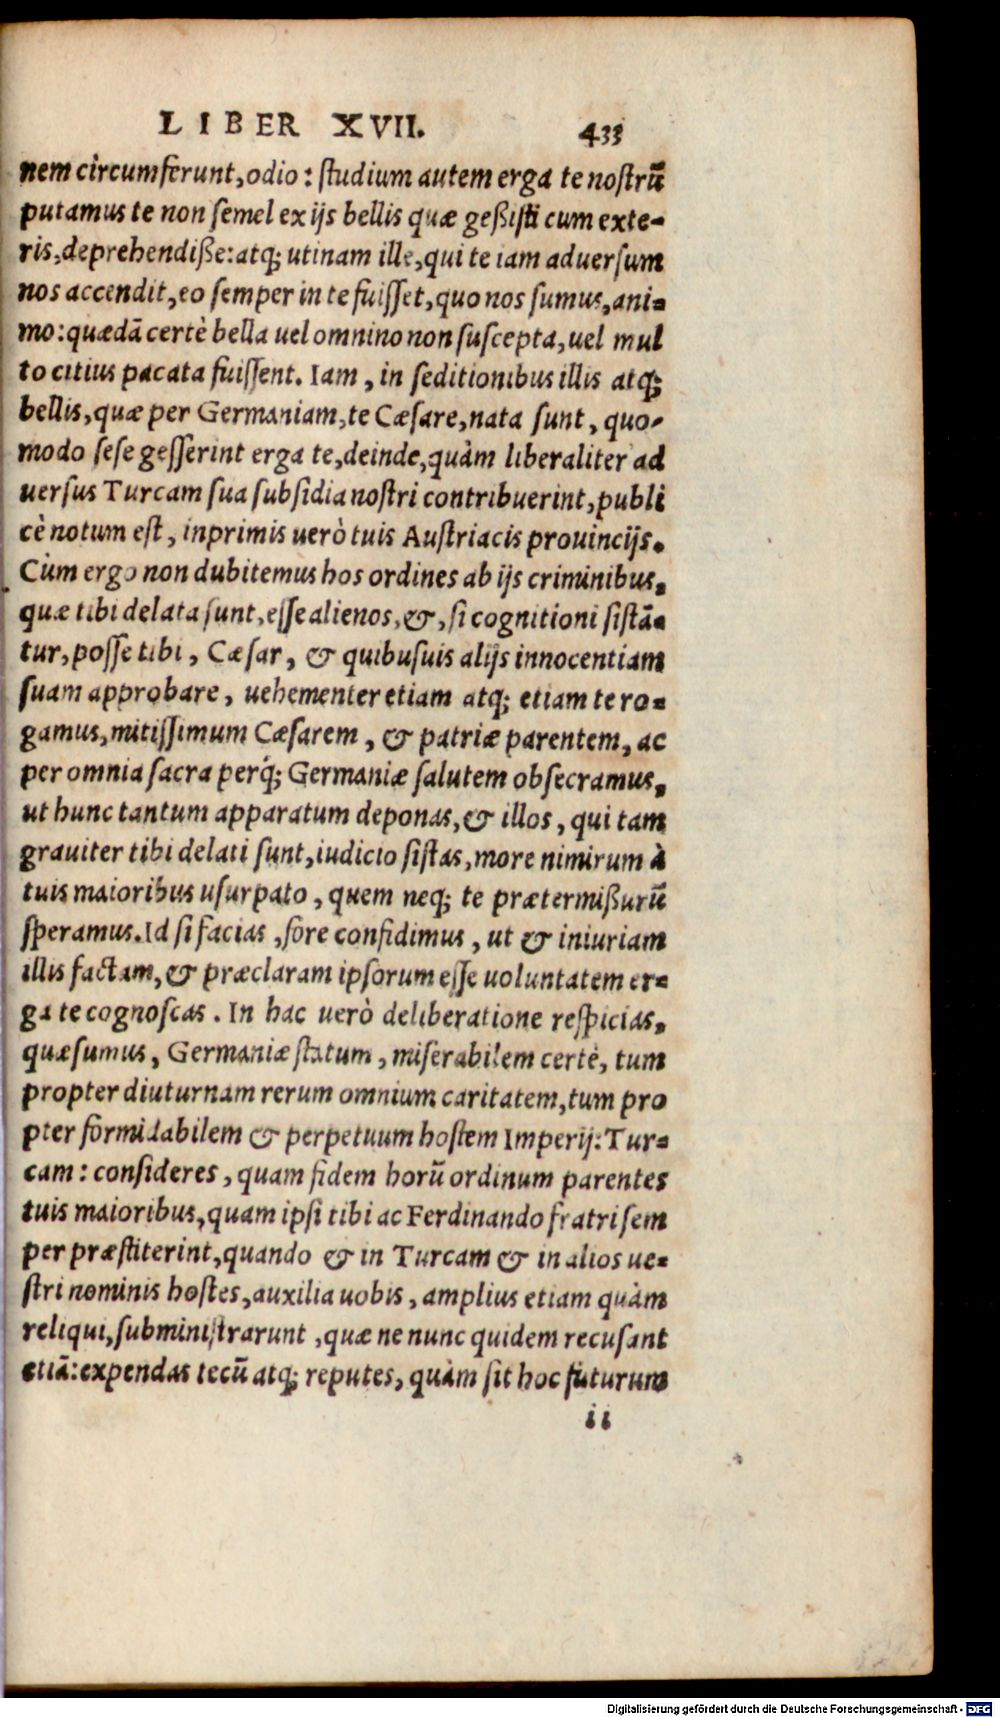 LIBER XVII. 433
nem circumferunt, odio: studium autem erga te nostrū
putamus te non semel ex ijs bellis quæ geßisti cum exte-
ris, deprehendiße: atq; utinam ille, qui te iam aduersum
nos accendit, eo semper in te fuisset, quo nos sumus, ani-
mo: quædā certè bella uel omnino non suscepta, uel mul
to citius pacata fuissent. Iam, in seditionibus illis atq;
bellis, quæ per Germaniam, te Cæsare, nata sunt, quo-
modo sese gesserint erga te, deinde, quàm liberaliter ad
uersus Turcam sua subsidia nostri contribuerint, publi
cè notum est, inprimis uerò tuis Austriacis prouincijs.
Cùm ergo non dubitemus hos ordines ab ijs criminibus,
quæ tibi delata sunt, esse alienos, &, si cognitioni sistā-
tur, posse tibi, Cæsar, & quibusuis alijs innocentiam
suam approbare, uehementer etiam atq; etiam te ro-
gamus, mitissimum Cæsarem, & patriæ parentem, ac
per omnia sacra perq́; Germaniæ salutem obsecramus,
ut hunc tantum apparatum deponas, & illos, qui tam
grauiter tibi delati sunt, iudicio sistas, more nimirum à
tuis maioribus usurpato, quem neq; te prætermißurū
speramus. Id si facias, fore confidimus, ut & iniuriam
illis factam, & præclaram ipsorum esse uoluntatem er-
ga te cognoscas. In hac uerò deliberatione respicias,
quæsumus, Germaniæ statum, miserabilem certè, tum
propter diuturnam rerum omnium caritatem, tum pro
pter formidabilem & perpetuum hostem Imperij: Tur-
cam: consideres, quam fidem horū ordinum parentes
tuis maioribus, quam ipsi tibi ac Ferdinando fratri sem
per præstiterint, quando & in Turcam & in alios ue-
stri nominis hostes, auxilia uobis, amplius etiam quàm
reliqui, subministrarunt, quæ ne nunc quidem recusant
etiā: expendas tecū atq; reputes, quàm sit hoc futurum
ii
Digitalisierung gefördert durch die Deutsche Forschungsgemeinschaft - DFG